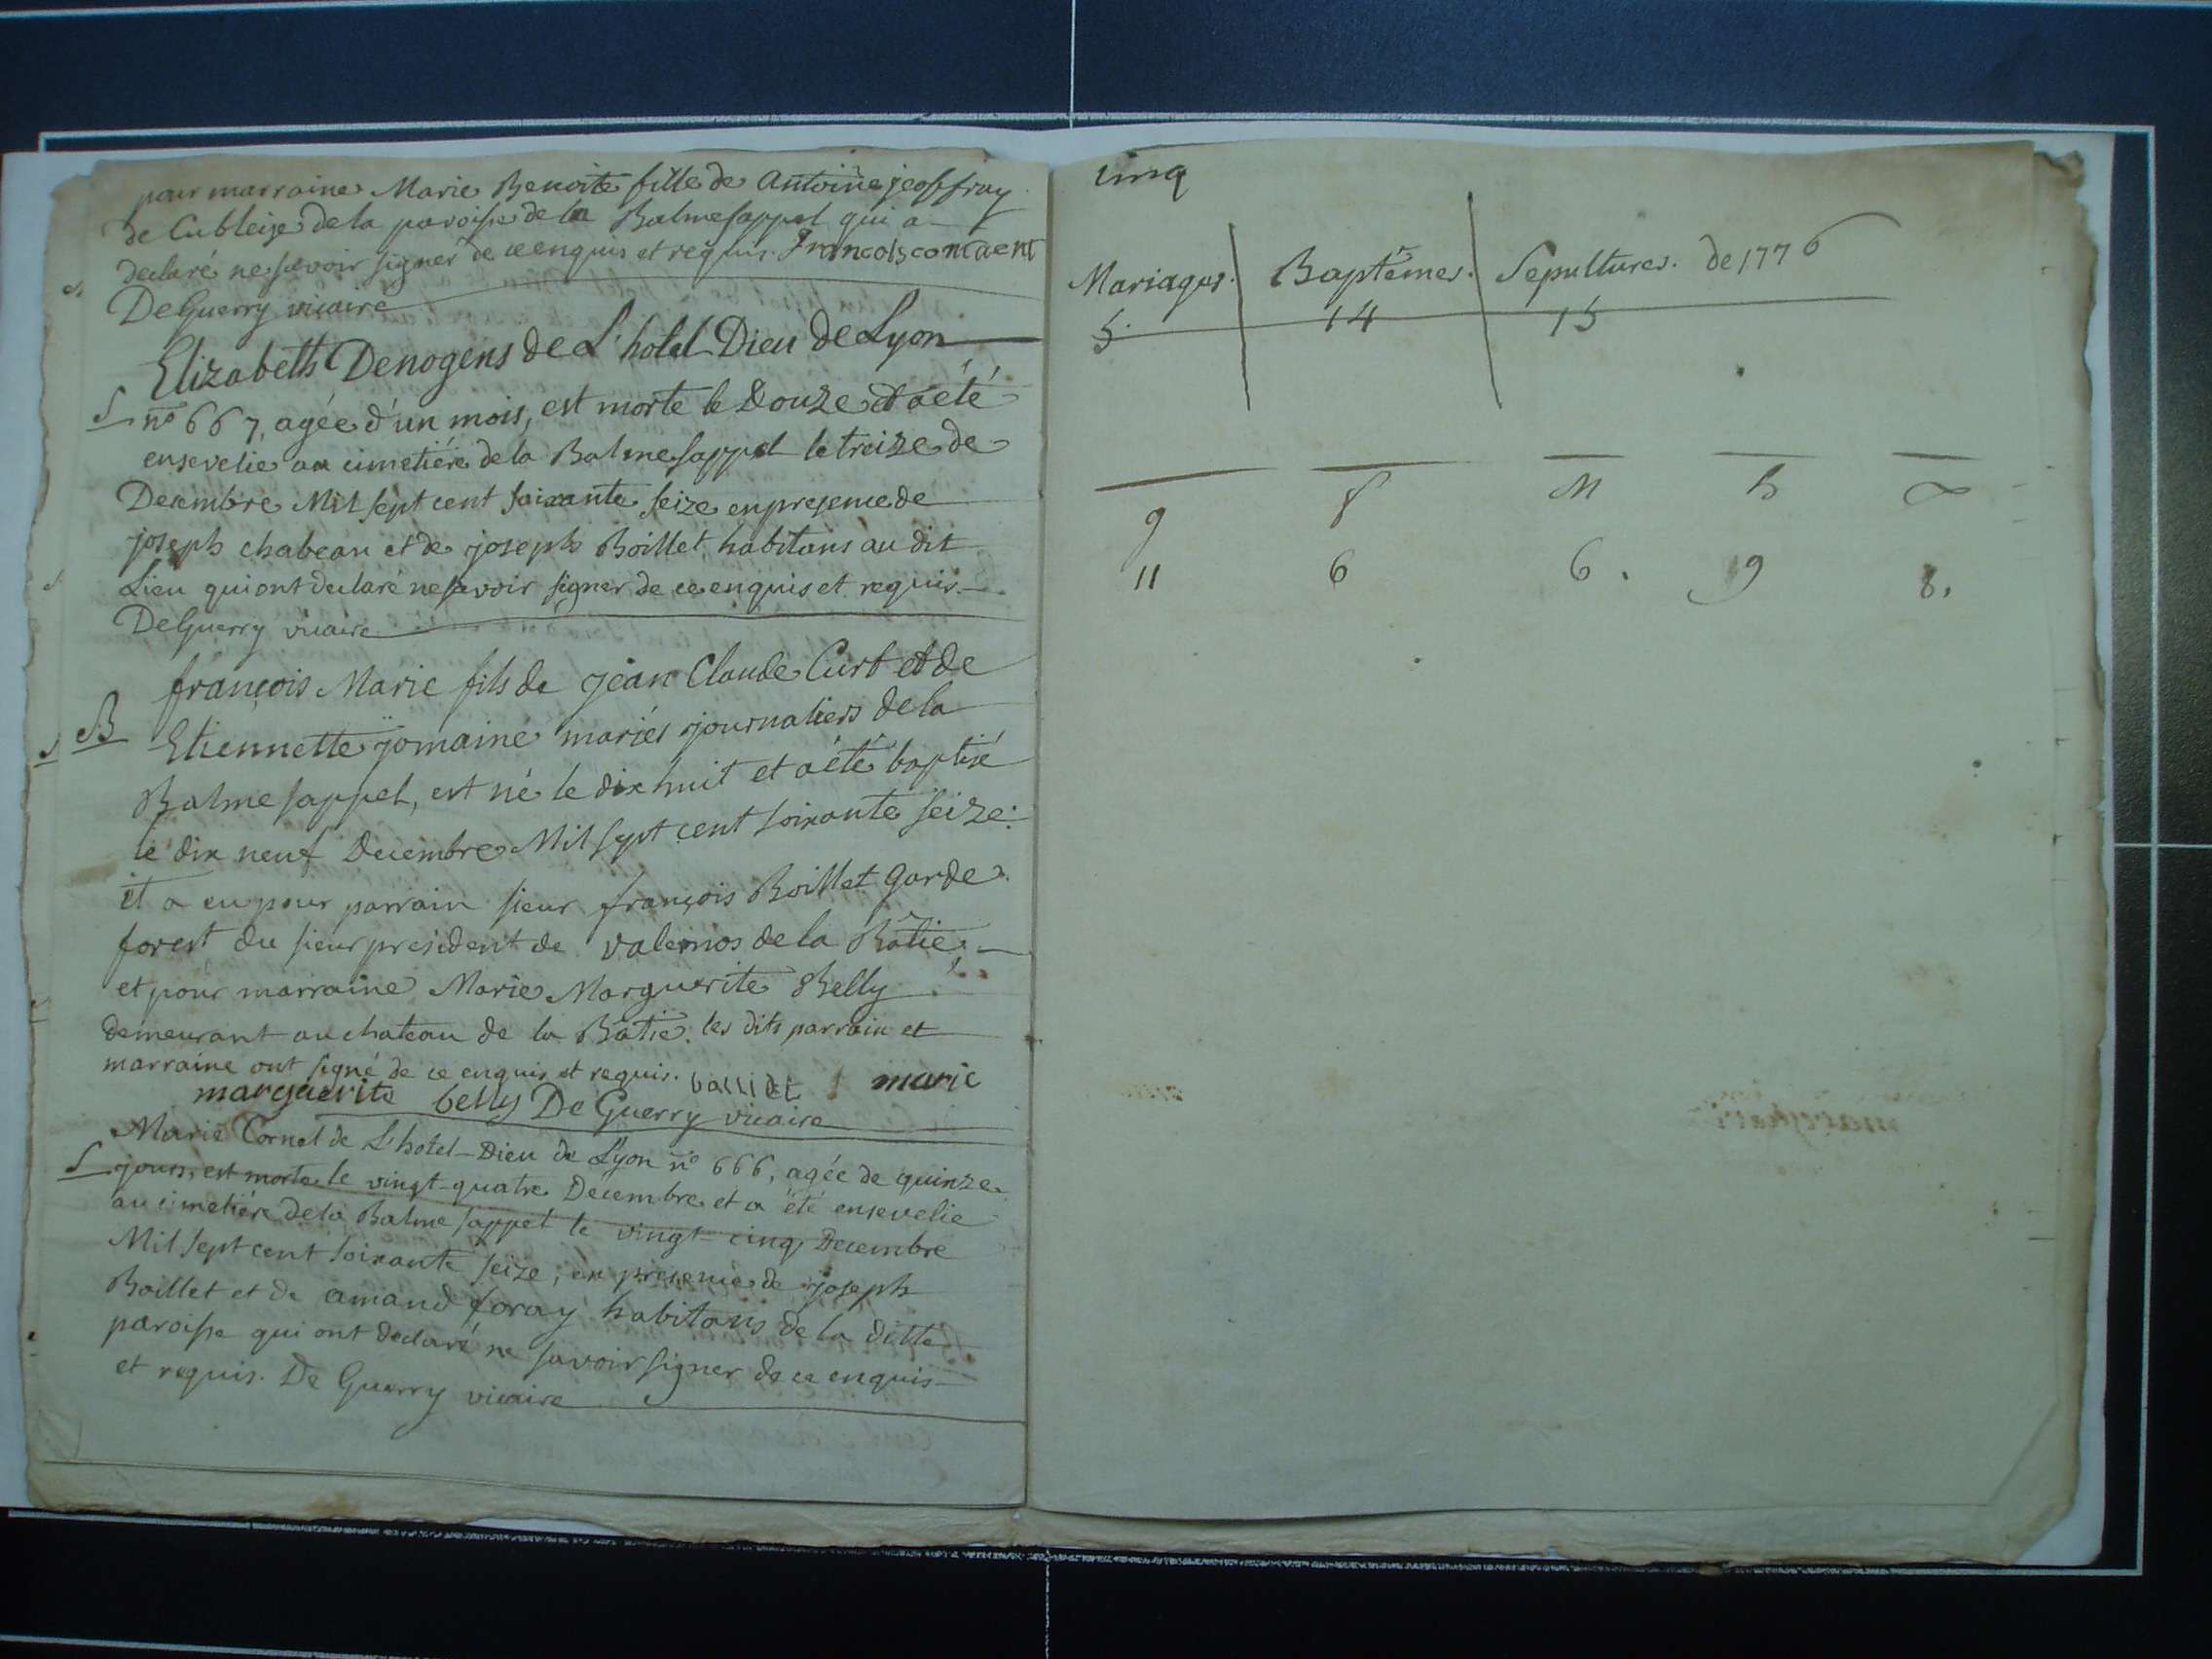 pour marraine Marie Benoite fille de Antoine jeoffray
de Cubleize de la paroisse de la Balmesappel qui a
declaré ne scavoir signer de ce enquis et requis. Francois
DeGuerry vicaire
Elizabeth Denogens de L'hotel-Dieu de Lyon
S n° 667, agée d'un mois, est morte le Douze et a été
ensevelie au cimetiére de la Balmesappel le treize de
Decembre Mil sept cent soixante seize en presence de
joseph chabeau et de joseph Boillet habitans au dit
Lieu qui ont declaré ne savoir signer de ce enquis et requis.
DeGuerry vicaire
françois Marie fils de jean Claude Curt et de
B Etiennette jomaine mariés journaliers de la
Balme sappel, est né le dix huit et a été baptisé
le dix neuf Decembre Mil sept cent soixante seize:
il a eu pour parrain sieur françois Boillet garde
forest du sieur president de valernos de la Bâtie,
et pour marraine Marie Marguerite Belly
demeurant au chateau de la Batie. les dits parrain et
marraine ont signé de ce enquis et requis. marie
marguerite belly De Guerry vicaire
Marie Cornel de L'hotel-Dieu de Lyon n° 666, agée de quinze
S jours, est morte le vingt-quatre Decembre et a été ensevelie
au cimetiére de la Balme sappel le vingt-cinq Decembre
Mil sept cent soixante seize; en presence de joseph
Boillet et de amand foray habitans de la ditte
paroisse qui ont declaré ne savoir signer de ce enquis
et requis. De Guerry vicaire
cinq
Mariages. Baptêmes. Sepultures. de 1776
5. 14 15
9 8 M
11 6 6. 9 8.